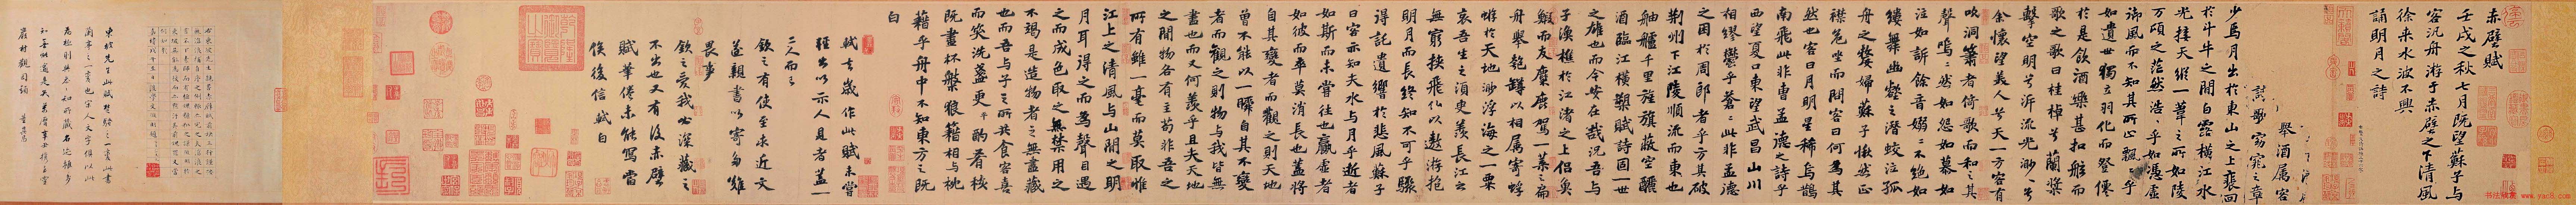 赤壁賦
壬戌之秋七月既望蘇子與
客汎舟游于赤壁之下清風
徐來水波不興
誦明月之詩
舉酒屬客
歌窈窕之章
少焉月出於東山之上裵回
於斗牛之間白露橫江水
光接天縱一葦之所如陵
萬頃之茫然浩浩乎如憑虛
御風而不知其所止飄飄乎
如遺世獨立羽化而登僊
於是飲酒樂甚扣舷而
歌之歌曰桂棹兮蘭槳
擊空明兮泝流光渺渺兮
余懷望美人兮天一方客有
吹洞簫者倚歌而和之其
聲嗚嗚然如怨如慕如
泣如訴餘音嫋嫋不絕如
縷舞幽壑之潛蛟泣孤
舟之嫠婦蘇子愀然正
襟危坐而問客曰何為其
然也客曰月明星稀烏鵲
南飛此非曹孟德之詩乎
西望夏口東望武昌山川
相繆鬱乎蒼蒼此非孟德
之困於周郎者乎方其破
荊州下江陵順流而東也
舳艫千里旌旗蔽空釃
酒臨江橫槊賦詩固一世
之雄也而今安在哉況吾與
子漁樵於江渚之上侶魚
鰕而友麋鹿駕一葉之扁
舟舉匏罇以相屬寄蜉
蝣於天地渺浮海之一粟
哀吾生之須臾羨長江之
無窮挾飛仙以遨游抱
明月而長終知不可乎驟
得託遺響於悲風蘇子
曰客亦知夫水與月乎逝者
如斯而未嘗往也贏虛者
如彼而卒莫消長也蓋將
自其變者而觀之則天地
曾不能以一瞬自其不變
者而觀之則物與我皆無
盡也而又何羨乎且夫天地
之間物各有主苟非吾之
所有雖一毫而莫取惟
江上之清風與山間之明
月耳得之而為聲目遇
之而成色取之無禁用之
不竭是造物者之無盡藏
也而吾與子之所共食客喜
而笑洗盞更酌肴核
既盡杯盤狼籍相與枕
藉乎舟中不知東方之既
白
軾去歲作此賦未嘗
輕出以示人見者蓋一
二人而已
欽之有使至求近文
遂親書以寄多難
畏事
欽之愛我必深藏之
不出也又有後赤壁
賦筆倦未能寫當
俟後信軾白
東坡先生此賦楚騷之一變也此書
蘭亭之一變也宋人文字俱以此
為極則與參知所藏名迹雖多
知無能逾是矣萬曆辛丑攜至靈
巖村觀因題 董其昌